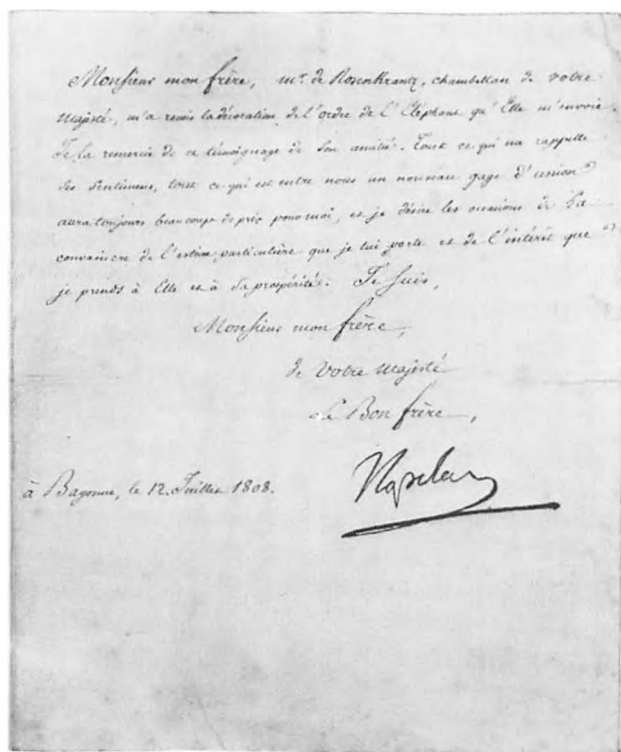 Monsieur mon frère, mr. de Rosenkrantz, chambellan de votre
majesté, m'a remis la décoration de l'ordre de l'Eléphant qu'Elle m'envoie.
Je la remercie de ce témoignage de son amitié. Tout ce qui me rappelle
ses sentimens, tout ce qui est entre nous un nouveau gage d'union
aura toujours beaucoup de prix pour moi, et je désire les occasions de la
convaincre de l'estime particulière que je lui porte et de l'intérêt que
je prends à Elle et à sa prospérité. Je suis,
Monsieur mon frère,
de votre majesté
Le Bon frère,
à Bayonne, le 12. Juillet 1808.
Napoleon